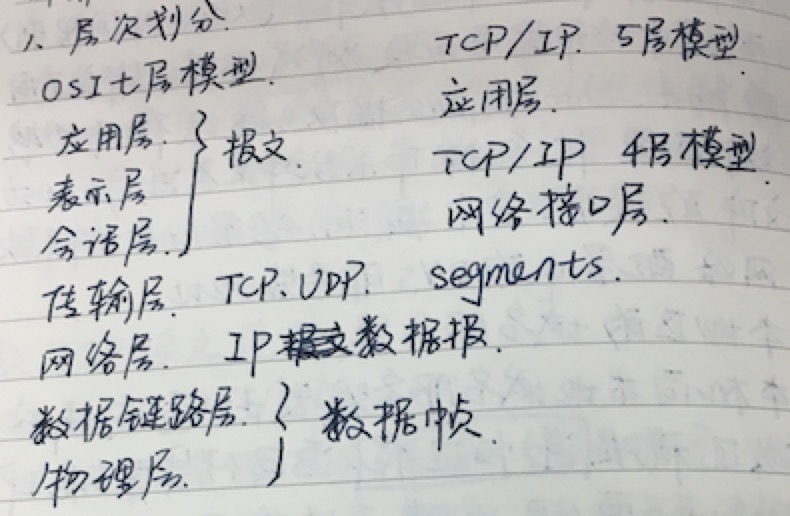 1、层次划分.
OSI七层模型.
应用层.
表示层
会话层.
报文.
传输层. TCP、UDP. segments.
网络层. IP数据报.
数据链路层.
物理层.
数据帧.
TCP/IP. 5层模型.
应用层.
TCP/IP 4层模型.
网络接口层.